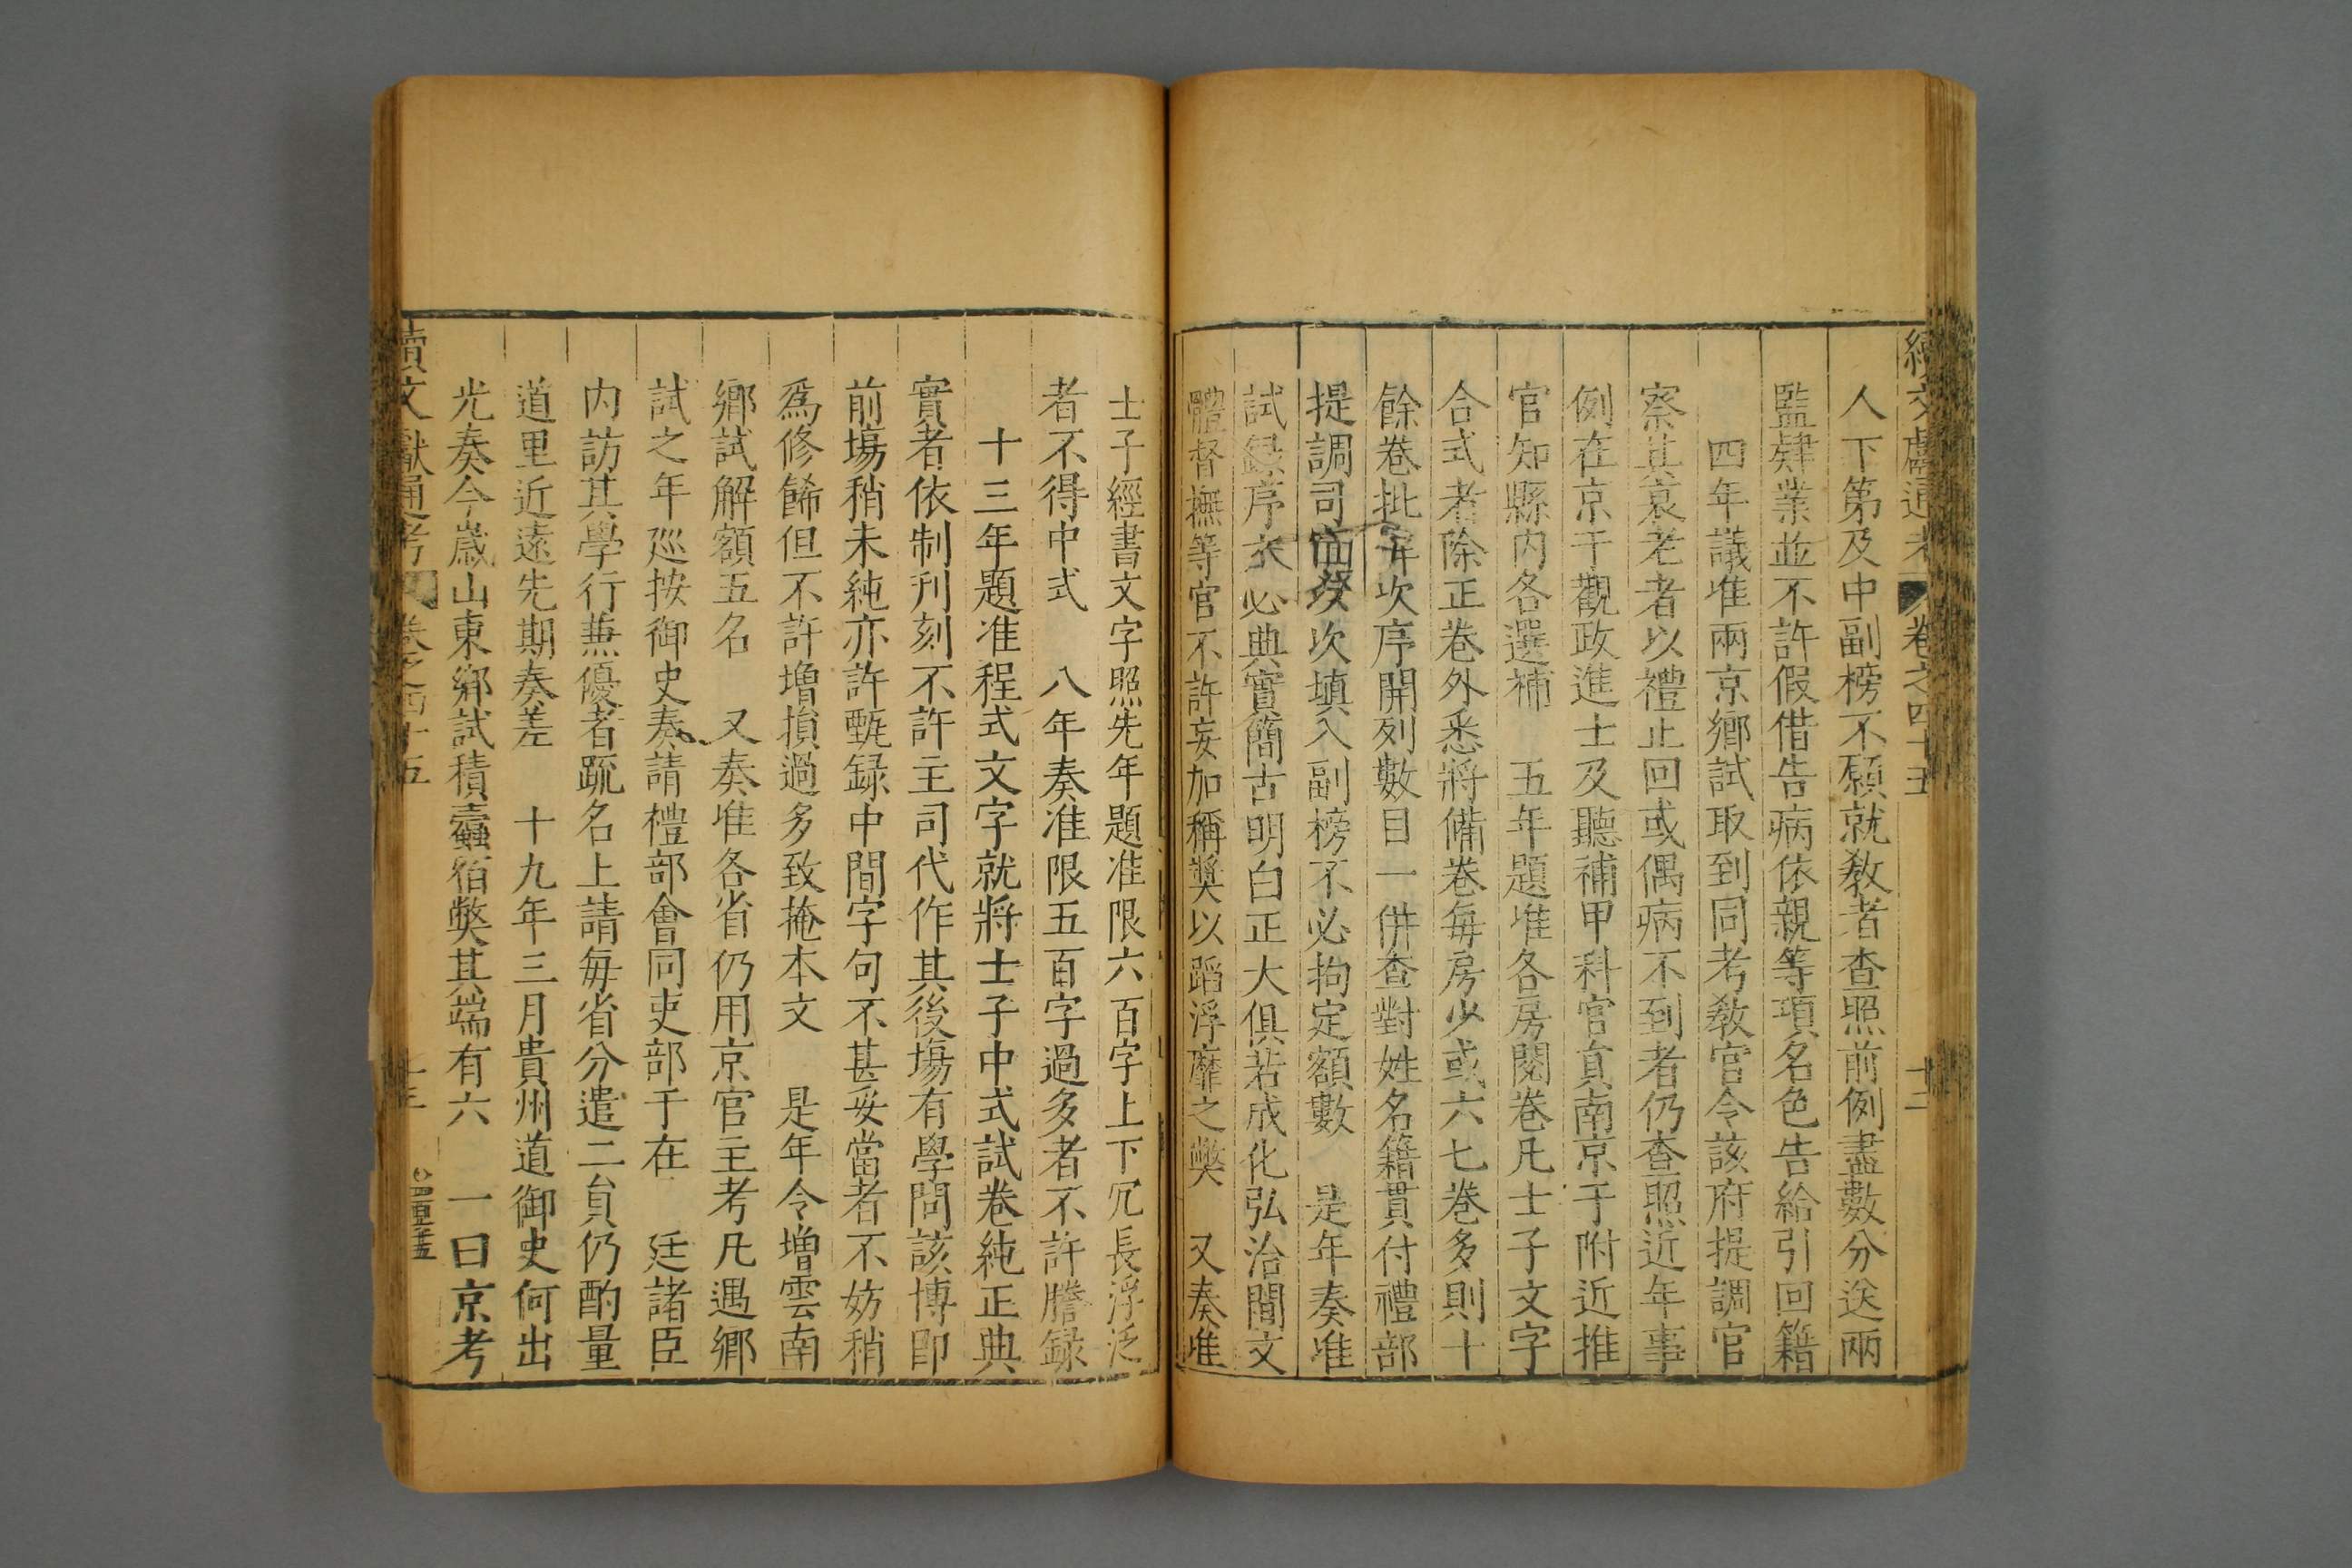 續文獻通考 卷之四十五 十二
人下第及中副榜不願就敎者查照前例盡數分送兩
監肄業並不許假借告病依親等項名色告給引回籍
四年議准兩京鄉試取到同考敎官令該府提調官
察其衰老者以禮止回或偶病不到者仍查照近年事
例在京于觀政進士及聽補甲科官員南京于附近推
官知縣内各選補 五年題准各房閱卷凡士子文字
合式者除正卷外悉將備卷每房少或六七卷多則十
餘卷批次序開列數目一併查對姓名籍貫付禮部
提調司次填入副榜不必拘定額數 是年奏准
試錄序文必典實簡古明白正大俱若成化弘治間文
體督撫等官不許妄加稱奬以蹈浮靡之弊 又奏准
士子經書文字照先年題准限六百字上下冗長浮泛
者不得中式 八年奏准限五百字過多者不許謄録
十三年題准程式文字就將士子中式試卷純正典
實者依制刊刻不許主司代作其後塲有學問該博卽
前塲稍未純亦許甄録中間字句不甚妥當者不妨稍
爲修餙但不許增損過多致掩本文 是年令增雲南
鄉試解額五名 又奏准各省仍用京官主考凡遇鄉
試之年廵按御史奏請禮部會同吏部于在 廷諸臣
内訪其學行兼優者䟽名上請每省分遣二員仍酌量
道里近遠先期奏差 十九年三月貴州道御史何出
光奏今歲山東鄉試積蠧宿弊其端有六 一曰京考
續文獻通考 卷之四十五 十三